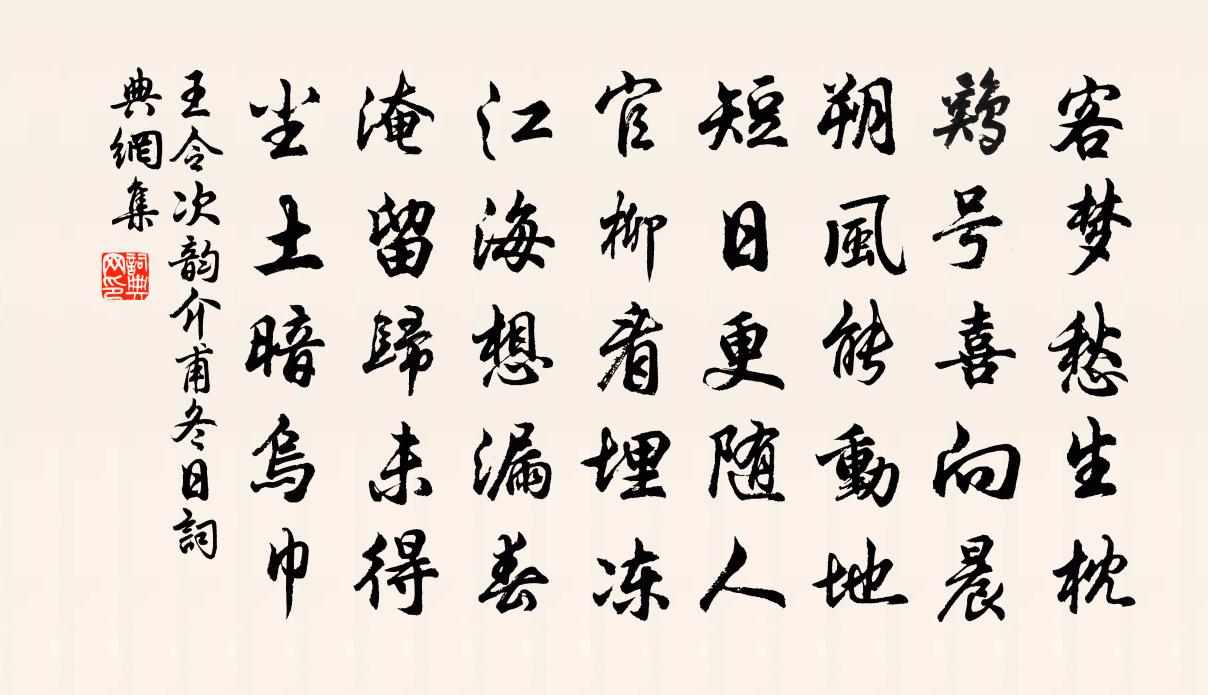 客梦愁生枕
鷄号喜向晨
朔風能動地
短日更随人
官柳看埋冻
江海想漏春
淹留歸未得
坐土暗烏巾
王令次韵介甫冬日詞
典網集
詞典
网印